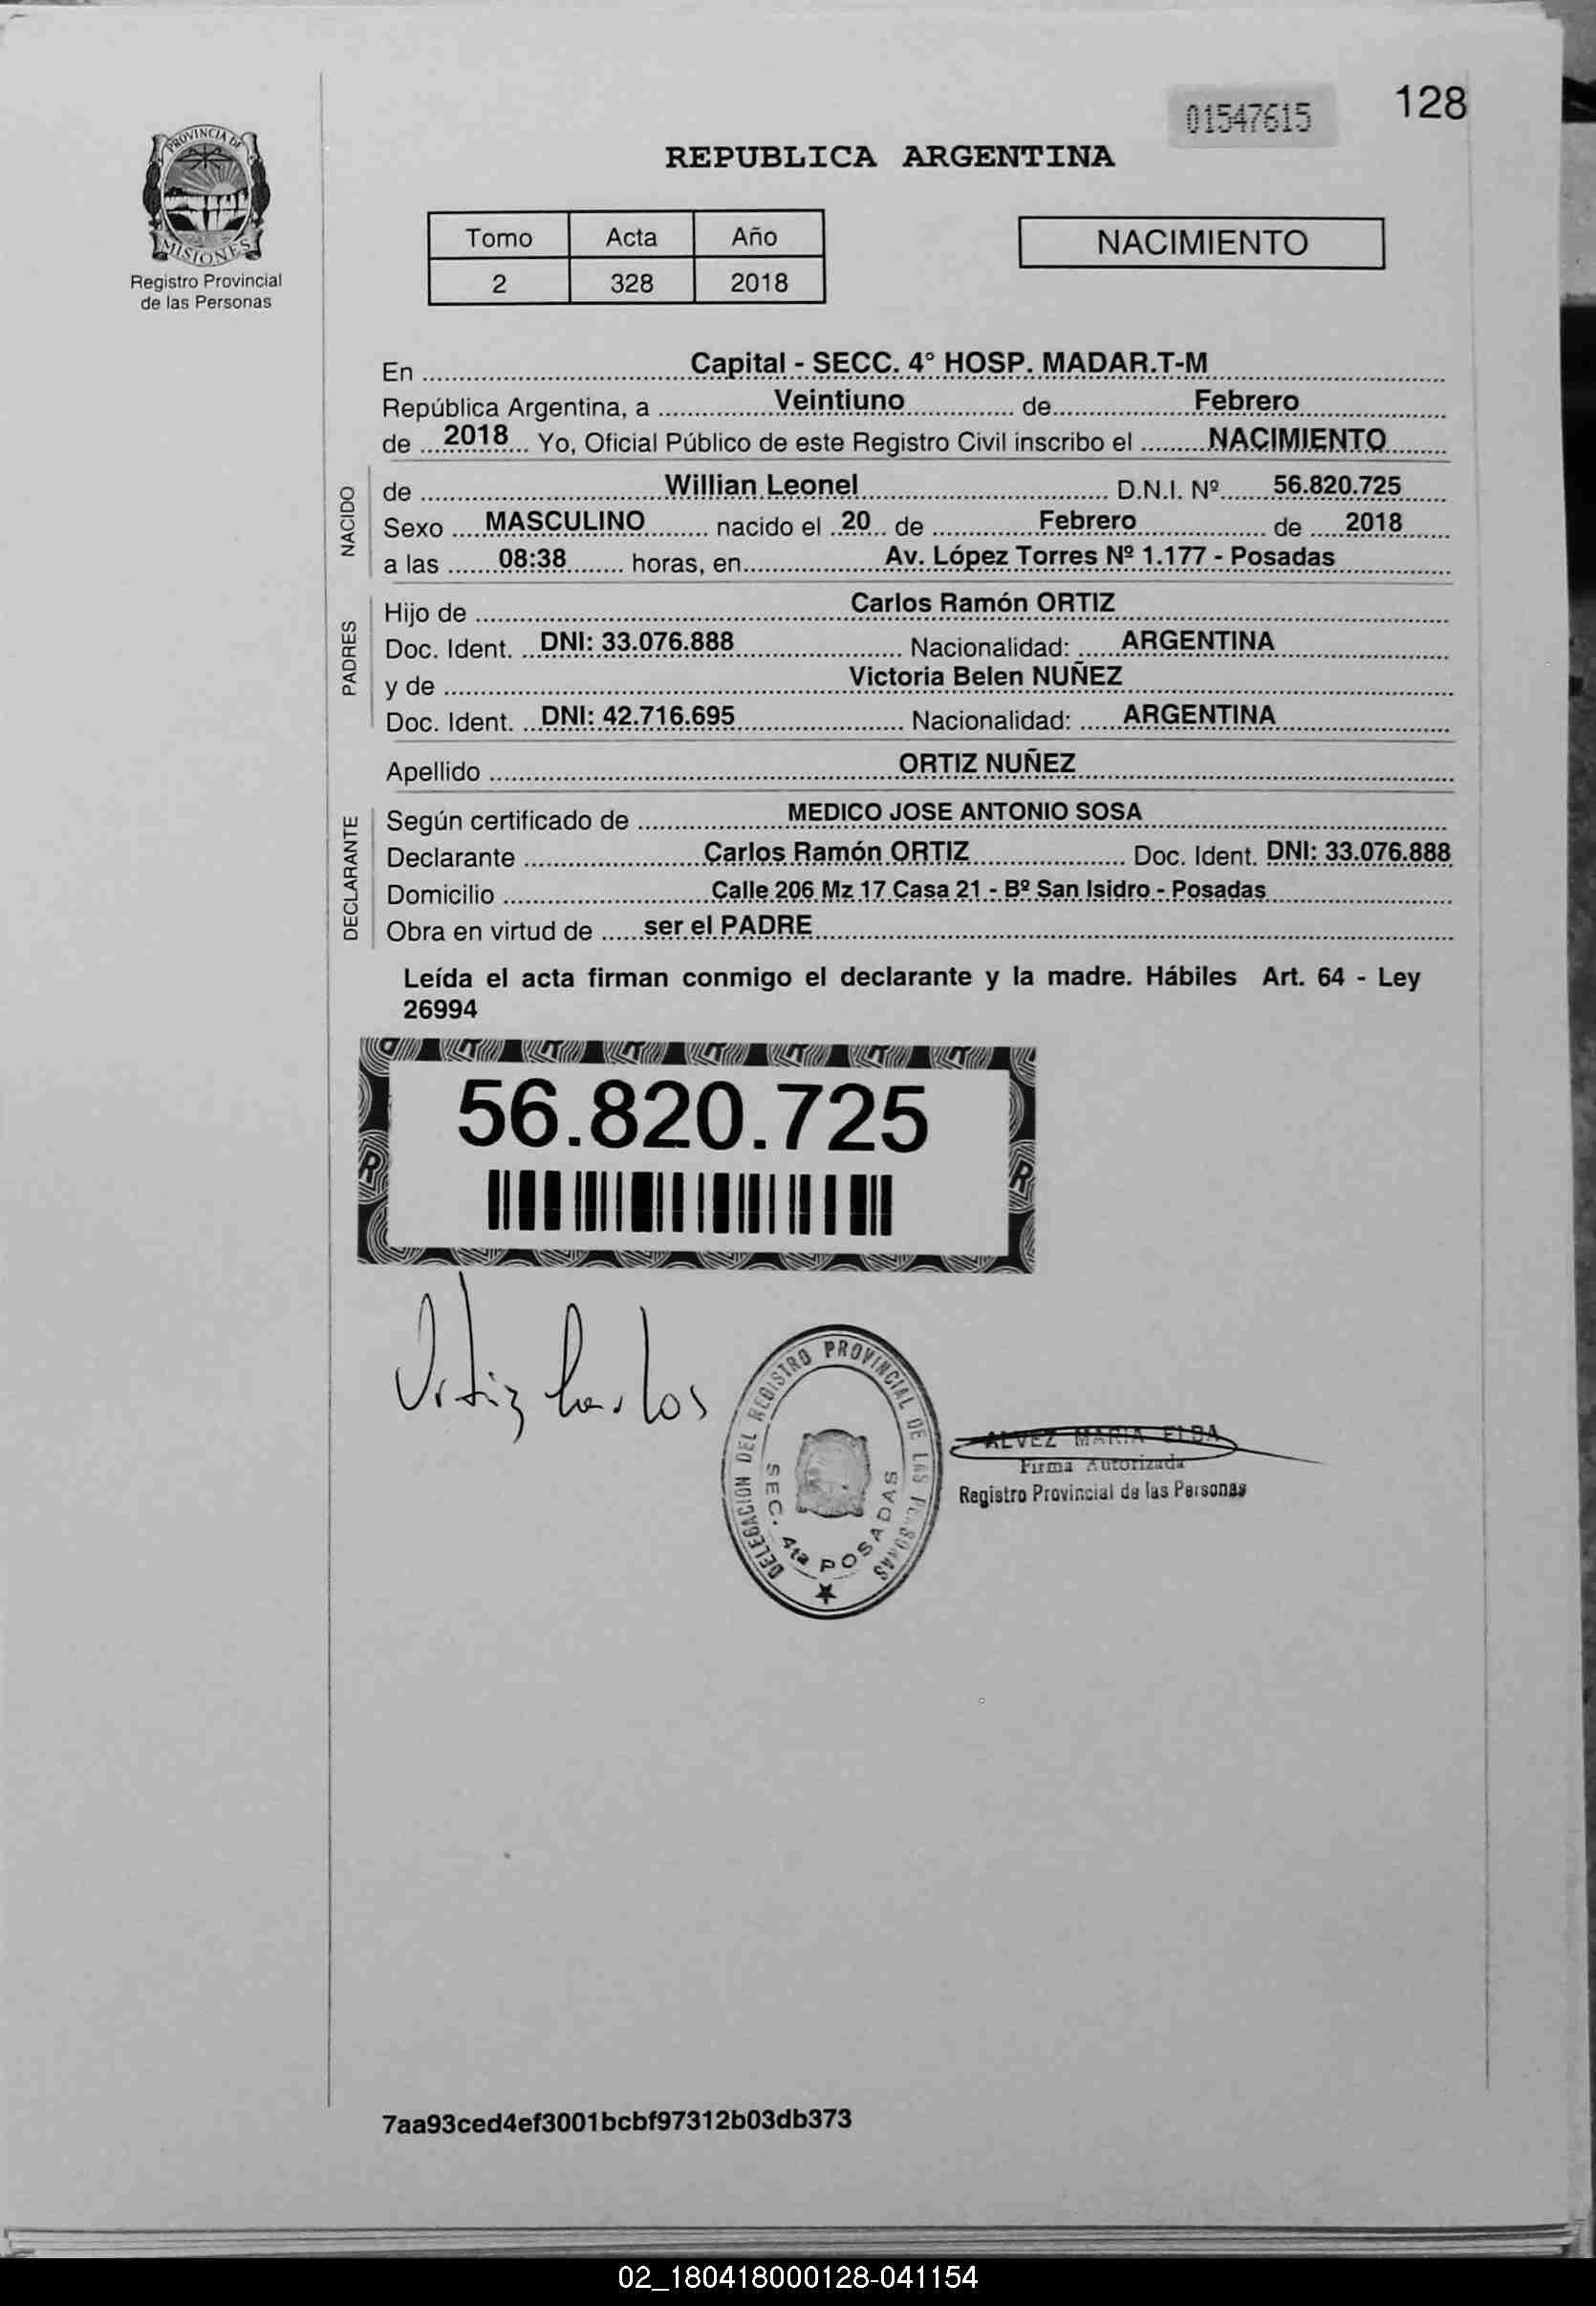 01547615
128
PROVINCIA DE
MISIONES
Registro Provincial
de las Personas
REPUBLICA ARGENTINA
Tomo Acta Año
2 328 2018
NACIMIENTO
En Capital - SECC. 4° HOSP. MADAR.T-M
República Argentina, a Veintiuno de Febrero
de 2018 Yo, Oficial Público de este Registro Civil inscribo el NACIMIENTO
NACIDO
de Willian Leonel D.N.I. Nº 56.820.725
Sexo MASCULINO nacido el 20 de Febrero de 2018
a las 08:38 horas, en Av. López Torres Nº 1.177 - Posadas
PADRES
Hijo de Carlos Ramón ORTIZ
Doc. Ident. DNI: 33.076.888 Nacionalidad: ARGENTINA
y de Victoria Belen NUÑEZ
Doc. Ident. DNI: 42.716.695 Nacionalidad: ARGENTINA
Apellido ORTIZ NUÑEZ
DECLARANTE
Según certificado de MEDICO JOSE ANTONIO SOSA
Declarante Carlos Ramón ORTIZ Doc. Ident. DNI: 33.076.888
Domicilio Calle 206 Mz 17 Casa 21 - Bº San Isidro - Posadas
Obra en virtud de ser el PADRE
Leída el acta firman conmigo el declarante y la madre. Hábiles Art. 64 - Ley
26994
56.820.725
Ortiz Carlos
DELEGACION DEL REGISTRO PROVINCIAL DE LAS PERSONAS
SEC. 4ta POSADAS
ALVEZ MARIA ELBA
Firma Autorizada
Registro Provincial de las Personas
7aa93ced4ef3001bcbf97312b03db373
02_180418000128-041154